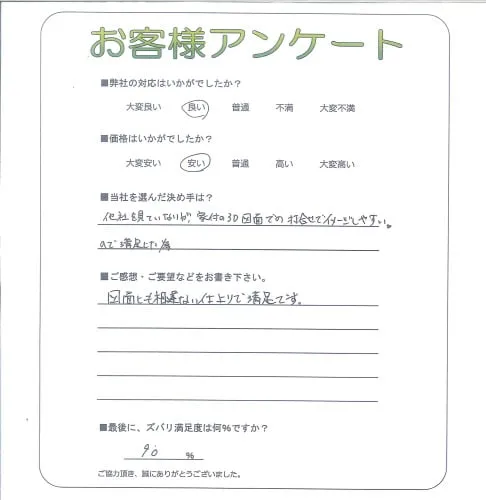 お客様アンケート
■弊社の対応はいかがでしたか？
大変良い 良い 普通 不満 大変不満
■価格はいかがでしたか？
大変安い 安い 普通 高い 大変高い
■当社を選んだ決め手は？
他社を見ていないが、受付の3D図面での打合せでイメージしやすい。
ので満足した為
■ご感想・ご要望などをお書き下さい。
図面とも相違ない仕上りで満足です。
■最後に、ズバリ満足度は何％ですか？
90 ％
ご協力頂き、誠にありがとうございました。